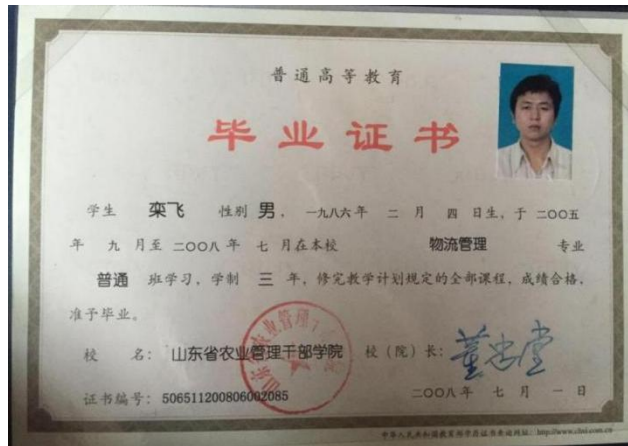 普通高等教育
毕业证书
学生 栾飞 性别 男，一九八六年 二 月 四 日生，于 二〇〇五
年 九 月至 二〇〇八 年 七 月在本校 物流管理 专业
普通 班学习，学制 三 年，修完教学计划规定的全部课程，成绩合格，
准予毕业。
校 名： 山东省农业管理干部学院 校（院）长： 董忠堂
证书编号： 506511200806002085 二〇〇八年 七 月 一 日
中华人民共和国教育部学历证书查询网址：http://www.chsi.com.cn